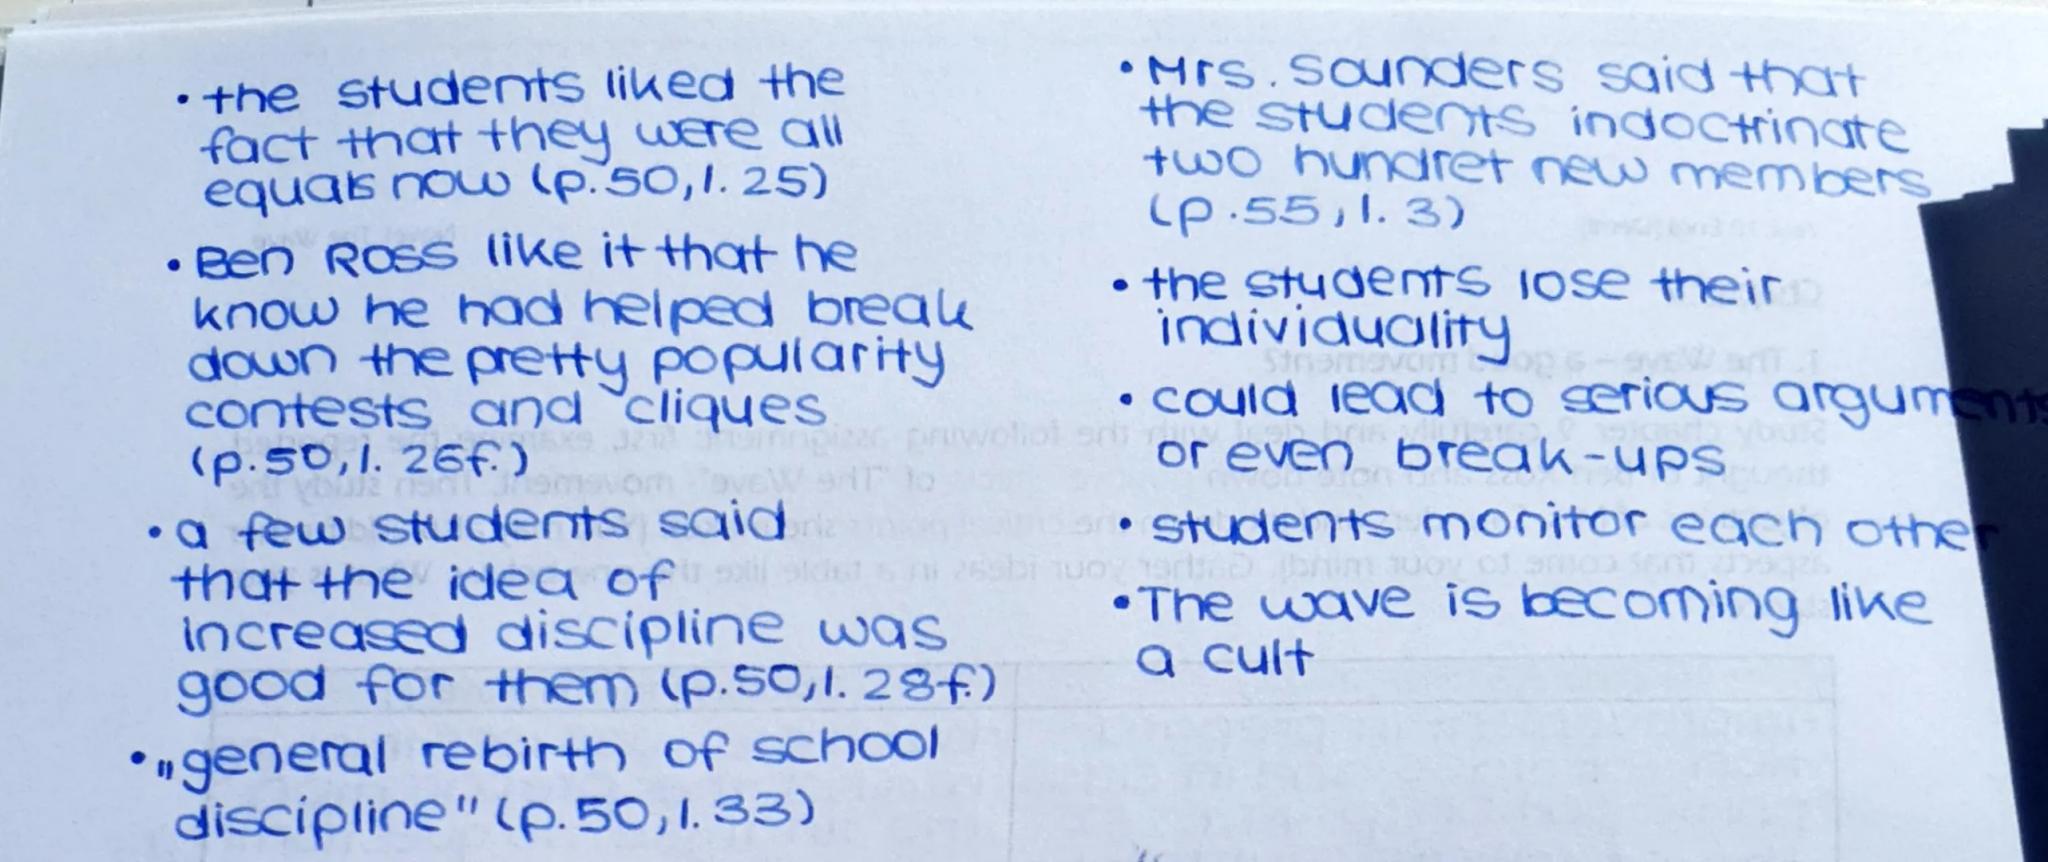 • the students liked the
fact that they were all
equals now (p. 50, l. 25)
• Ben Ross like it that he
know he had helped break
down the pretty popularity
contests and cliques
(p. 50, l. 26f.)
• a few students said
that the idea of
increased discipline was
good for them (p. 50, l. 28f.)
• „general rebirth of school
discipline" (p. 50, l. 33)
• Mrs. Saunders said that
the students indoctrinate
two hundret new members
(p. 55, l. 3)
• the students lose their
individuality
• could lead to serious arguments
or even break-ups
• students monitor each other
• The wave is becoming like
a cult